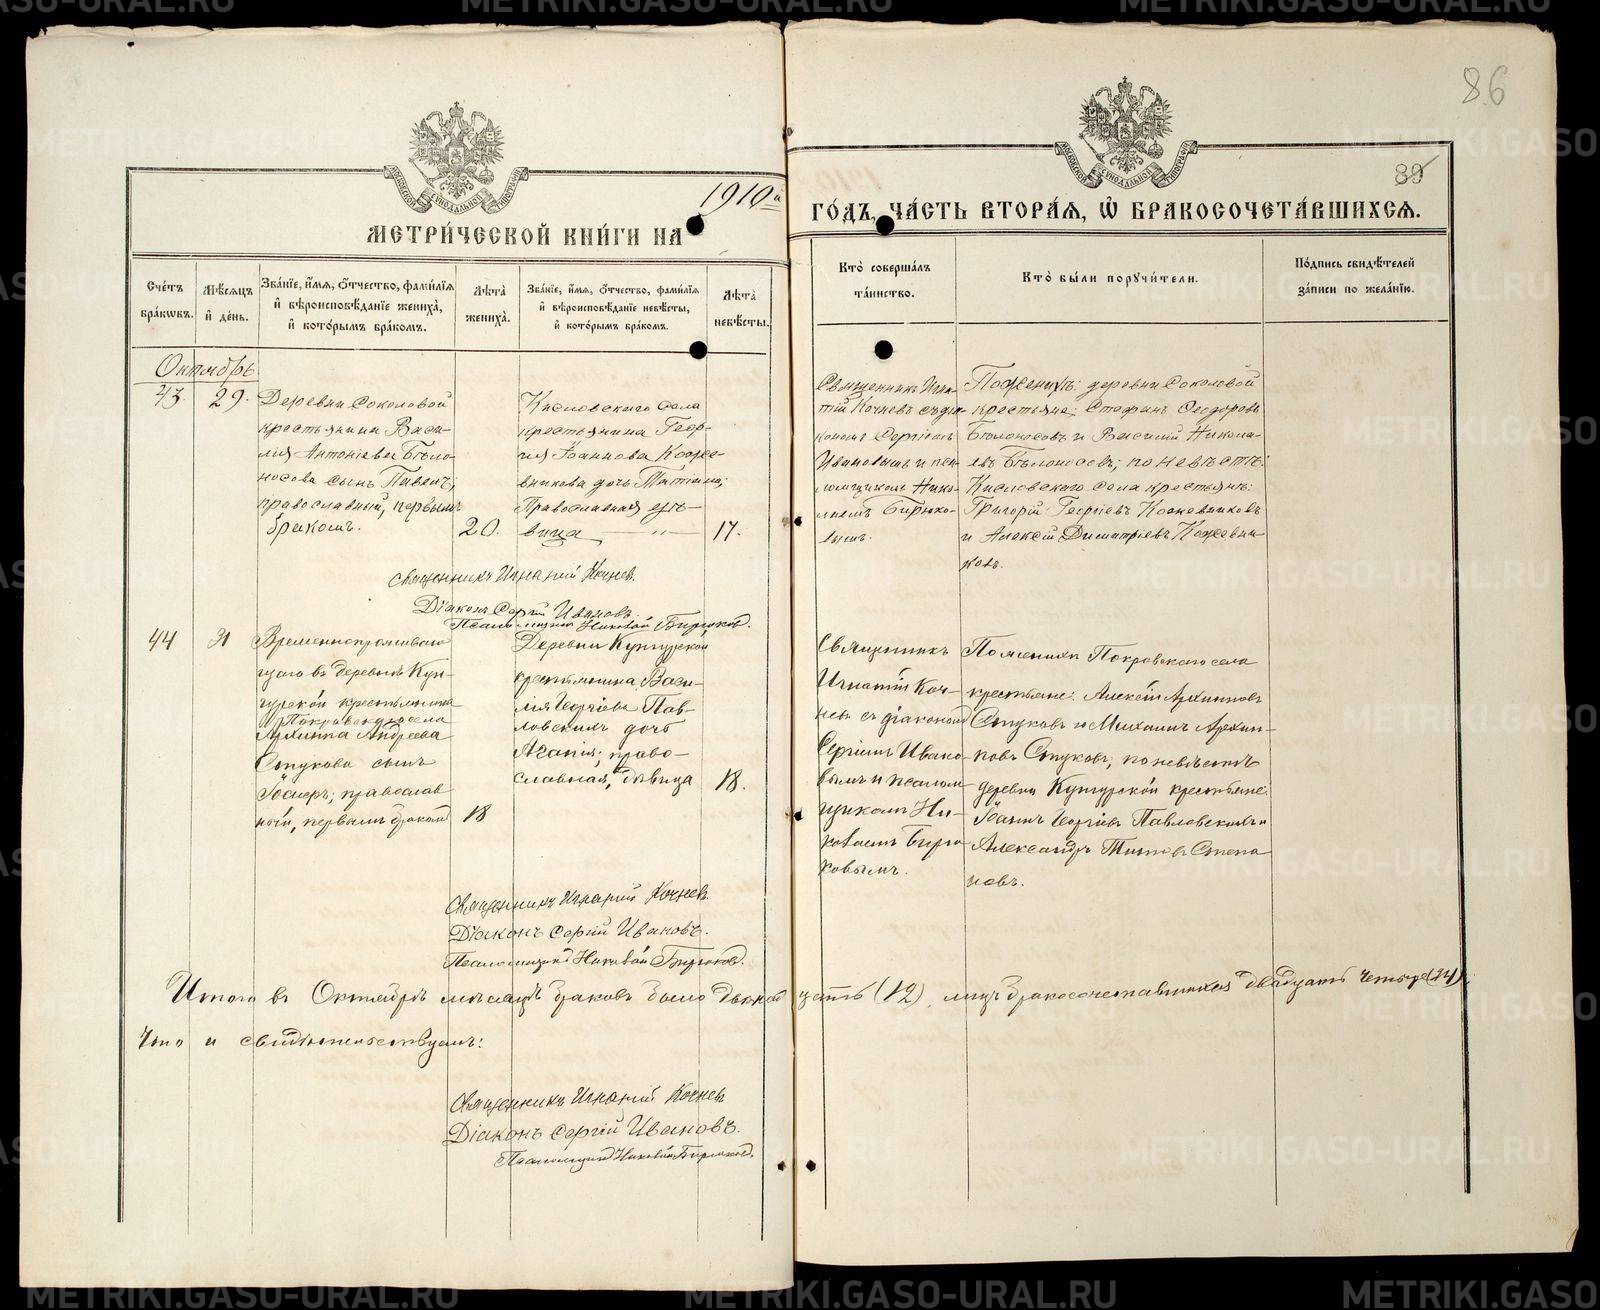 86
85
1910 г.
МЕТРИ́ЧЕСКОЙ КНИ́ГИ НА
ГО́ДЪ, ЧА́СТЬ ВТОРА́Я, Ѡ БРАКОСОЧЕТА́ВШИХСЯ.
Сче́тъ бра́кѡвъ.
Мѣ́сяцъ и де́нь.
Зва́нїе, и́мя, ѻ҆́тчество, фами́лїя
и вѣроисповѣ́данїе жениха̀,
и кото́рымъ бра́комъ.
Лѣта̀ жениха̀.
Зва́нїе, и́мя, ѻ҆́тчество, фами́лїя
и вѣроисповѣ́данїе невѣ́сты,
и кото́рымъ бра́комъ.
Лѣта̀ невѣ́сты.
Кто̀ соверша́лъ
та́инство.
Кто̀ бы́ли порꙋчи́тели.
По́дпись свидѣ́телей
за́писи по жела́нїю.
Октябрь
43.
29.
Деревни Соколовой
крестьянина Васи-
лія Антоніева Бѣло-
носова сынъ Павелъ,
православный, первымъ
бракомъ.
20.
Кисловскаго села
крестьянина Геор-
гія Іоаннова Коже-
вникова дочь Татіана;
Православная дѣ-
вица — " —
17.
Священникъ Игна-
тій Кочневъ съ діа-
кономъ Сергіемъ
Ивановымъ и пса-
ломщикомъ Нико-
лаемъ Бирюко-
вымъ.
По женихѣ: деревни Соколовой
крестьяне: Стефанъ Ѳеодоровъ
Бѣлоносовъ и Василій Никола-
евъ Бѣлоносовъ; по невѣстѣ:
Кисловского села крестьяне:
Григорій Георгіевъ Кожевниковъ
и Алексій Димитріевъ Кожевни
ковъ.
Священникъ Игнатій Кочневъ.
Діаконъ Сергій Ивановъ.
Псаломщикъ Николай Бирюковъ.
44
31
Временнопроживаю
щаго въ деревнѣ Кун-
гурской крестьянина
Покровскаго села
Архиппа Андреева
Стукова сынъ
православ
ный, первымъ бракомъ
18
Деревни Кунгурской
крестьянина Васи-
лія Георгіева Пав-
ловскихъ дочь
Агапія; право-
славная, дѣвица
18.
Священникъ
Игнатій Коч-
невъ съ діакономъ
Сергіемъ Ивано
вымъ и псалом
щикомъ Ни-
колаемъ Бирю
ковымъ.
По женихѣ Покровскаго села
крестьяне: Алексій Архипповъ
Стуковъ и Михаилъ Архип-
повъ Стуковъ; по невѣстѣ
деревни Кунгурской крестьяне:
Іоаннъ Георгіевъ Павловскихъ и
Александръ Титовъ Степа
новъ.
Священникъ Игнатій Кочневъ.
Діаконъ Сергій Ивановъ.
Псаломщикъ Николай Бирюковъ.
Итого въ Октябрѣ мѣсяцѣ браковъ было двѣнадцать (12), лицъ бракосочетавшихся двадцать четыре (24).
Что и свидѣтельствуемъ:
Священникъ Игнатій Кочневъ
Діаконъ Сергій Ивановъ.
Псаломщикъ Николай Бирюковъ.
METRIKI.GASO-URAL.RU